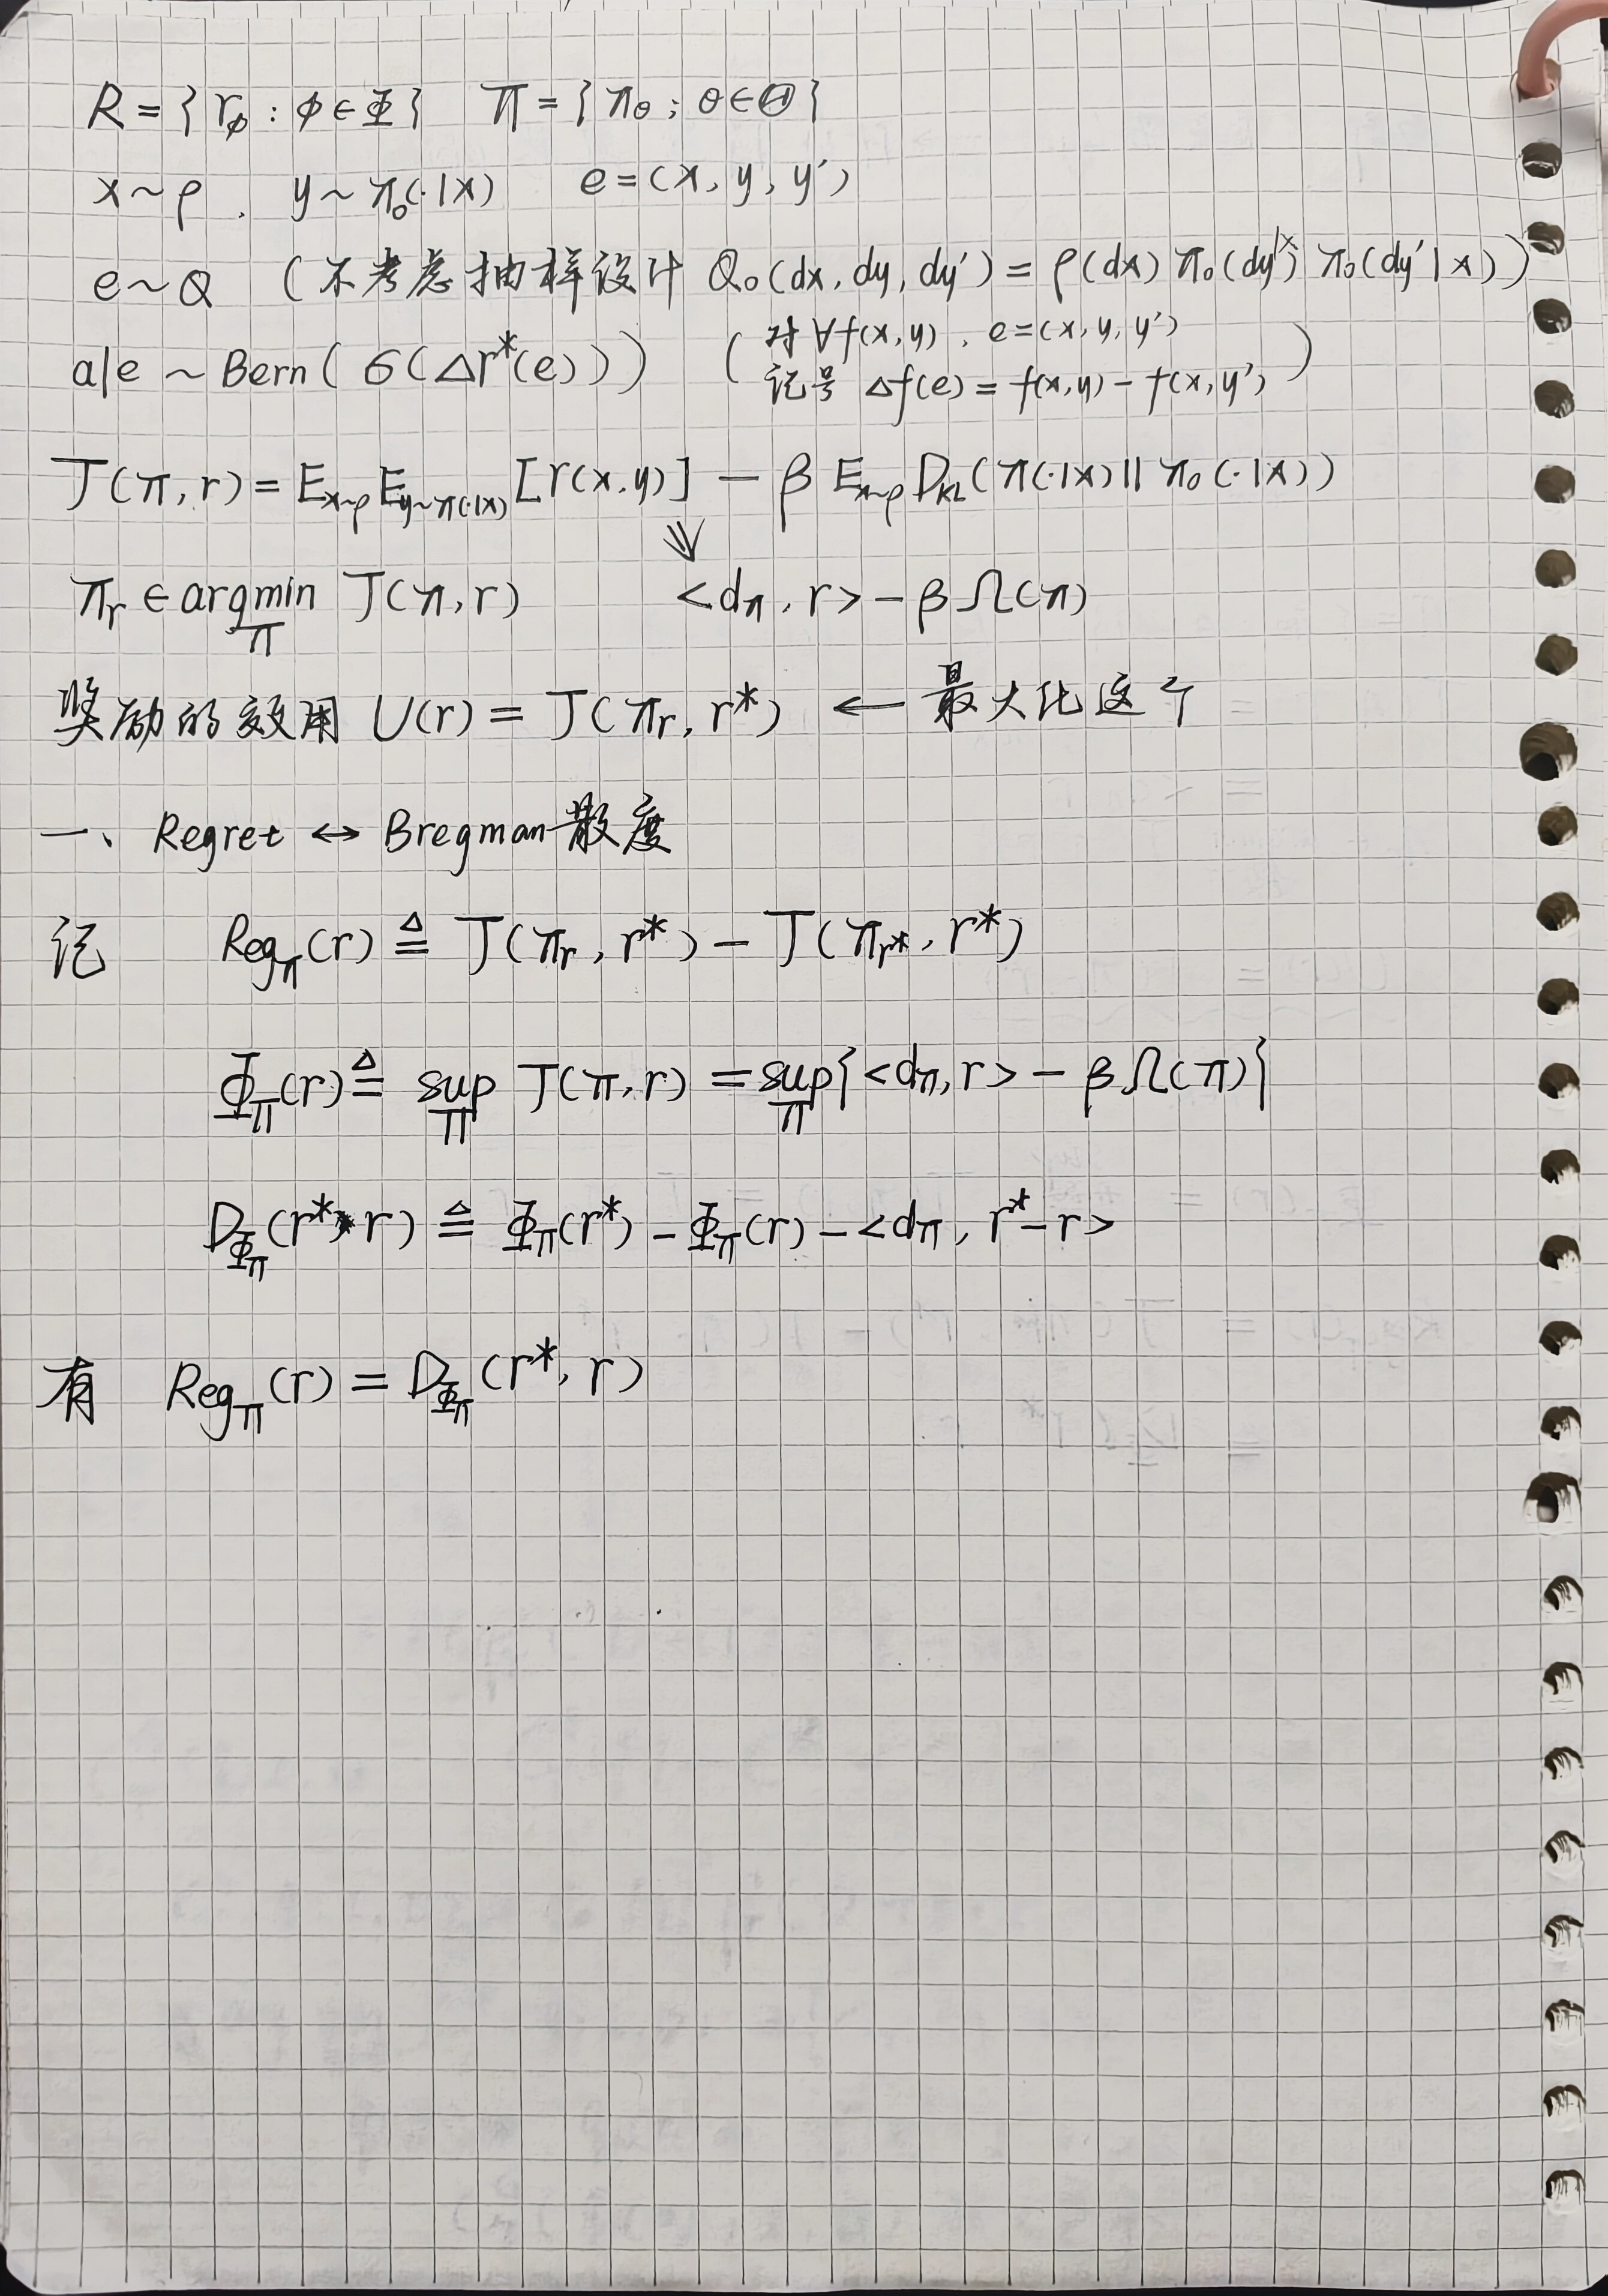 R = { r_φ : φ ∈ Φ }   Π = { π_θ ; θ ∈ Θ }
x ~ ρ ,   y ~ π_0(·|x)   e = (x, y, y')
e ~ Q   (不考虑抽样设计 Q_0(dx, dy, dy') = ρ(dx) π_0(dy|x) π_0(dy'|x))
a|e ~ Bern( σ(Δr*(e)) )
( 对 ∀f(x,y) , e=(x,y,y')
记号 Δf(e) = f(x,y) − f(x,y') )
J(π, r) = E_{x~ρ} E_{y~π(·|x)} [r(x,y)] − β E_{x~ρ} D_{KL}(π(·|x) || π_0(·|x))
⇓
π_r ∈ argmin_Π J(π, r)   <d_π, r> − β Ω(π)
奖励的效用 U(r) = J(π_r, r*) ← 最大化这个
一、Regret ↔ Bregman 散度
记 Reg_Π(r) ≜ J(π_r, r*) − J(π_{r*}, r*)
Φ_Π(r) ≜ sup_Π J(π, r) = sup_Π { <d_π, r> − β Ω(π) }
D_{Φ_Π}(r*, r) ≜ Φ_Π(r*) − Φ_Π(r) − <d_π, r* − r>
有 Reg_Π(r) = D_{Φ_Π}(r*, r)